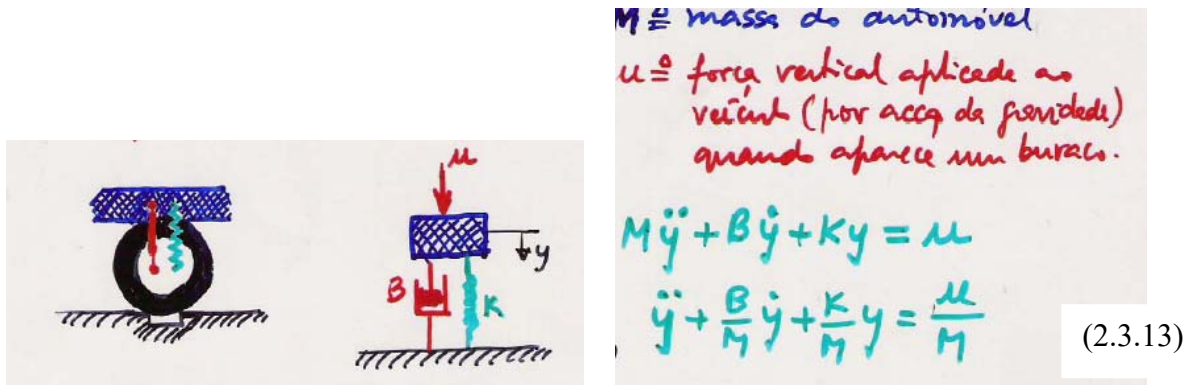 u
y
B
K
M ≜ massa do automóvel
u ≜ força vertical aplicada ao
veículo (por acção da gravidade)
quando aparece um buraco.
Mÿ + Bẏ + Ky = u
ÿ + B/M ẏ + K/M y = u/M
(2.3.13)